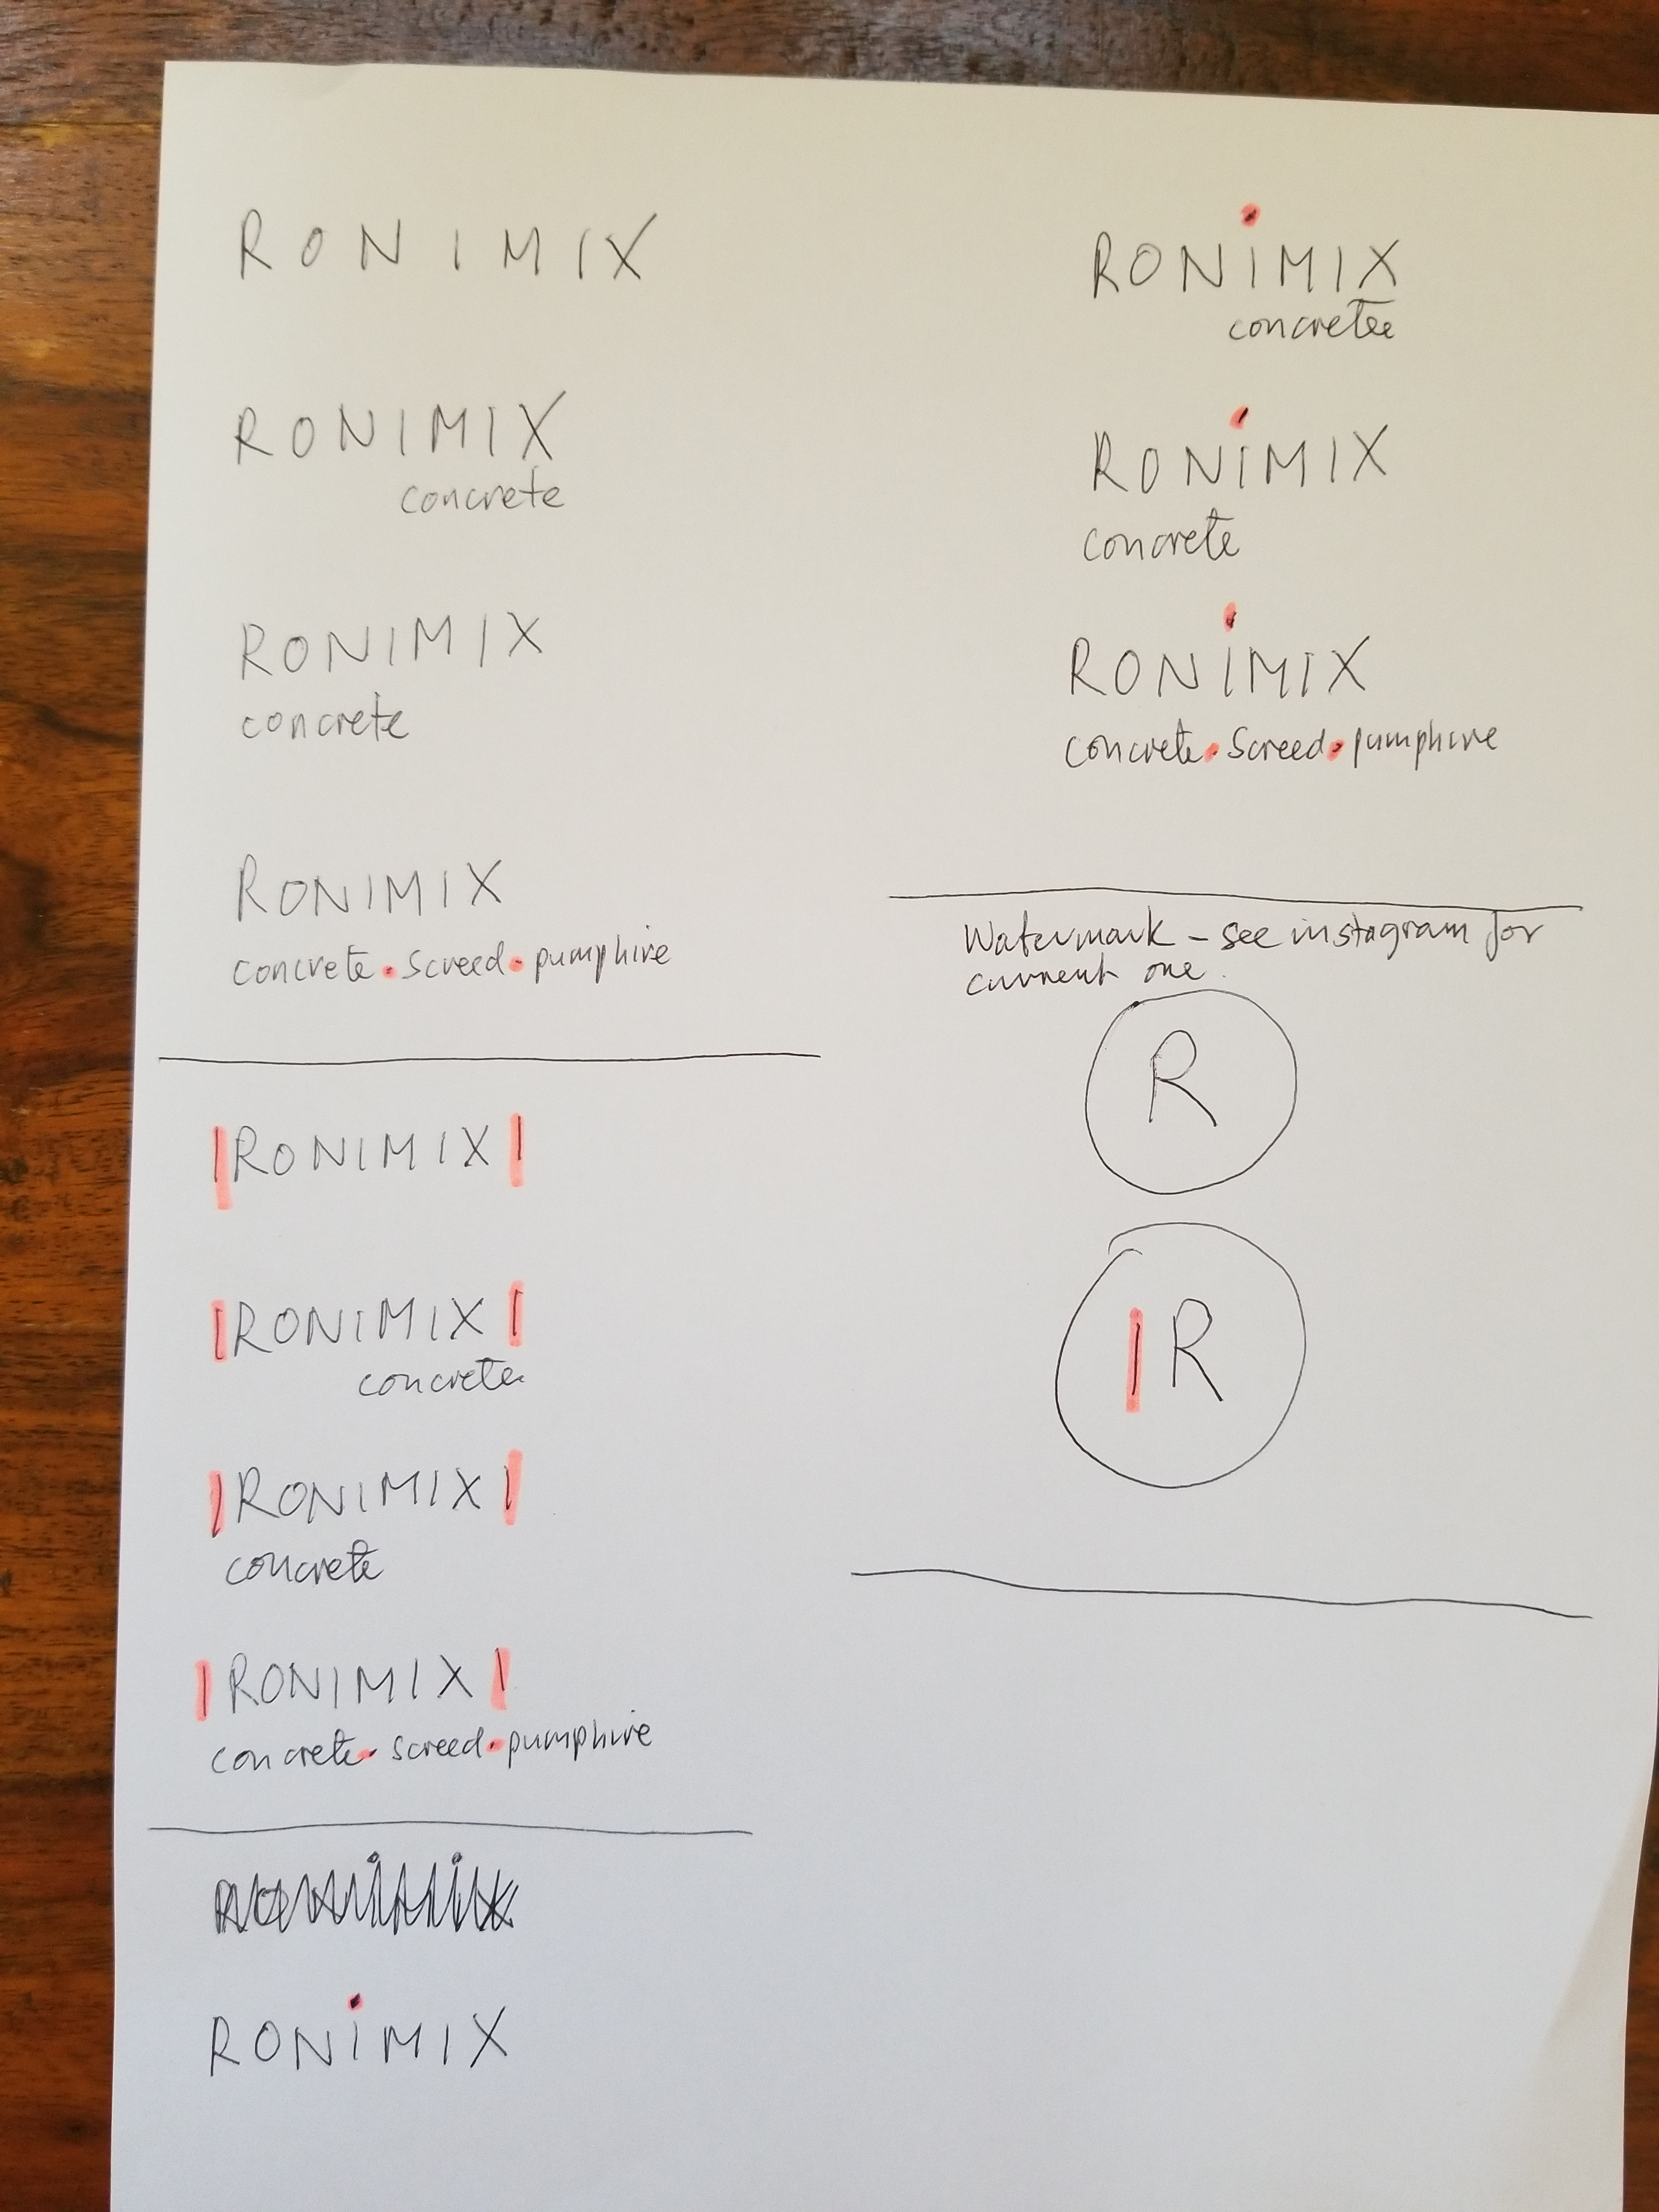 RONIMIX
RONIMIX
concrete
RONIMIX
concrete
RONIMIX
concrete • screed • pumphire
|RONIMIX|
|RONIMIX|
concrete
|RONIMIX|
concrete
|RONIMIX|
concrete • screed • pumphire
RONiMIX
RONiMIX
concrete
RONiMIX
concrete
RONiMIX
concrete • screed • pumphire
Watermark - see instagram for
current one.
R
|R